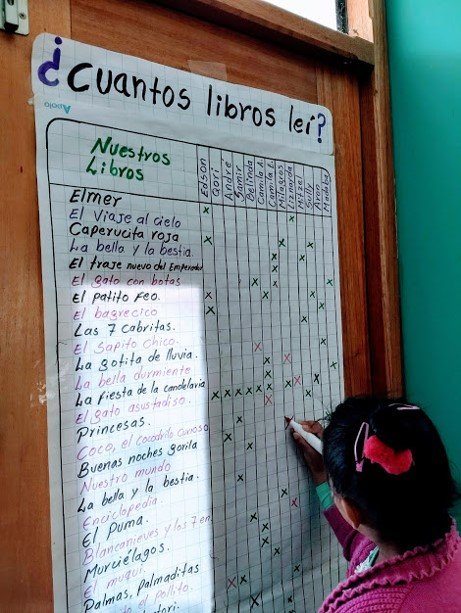 ¿Cuantos libros leí?
Apolo
Nuestros
Libros
Edson
Qori
Andre
Samir
Belinda
Camila A.
Camila E.
Milagros
Liznarda
Mitzel
Sully
Aron
Elmer
El viaje al cielo
Caperucita roja
La bella y la bestia.
El traje nuevo del Emperador
El gato con botas
El patito Feo.
El bagrecico
Las 7 cabritas.
El Sapito Chico.
La gotita de lluvia.
La bella durmiente
La fiesta de la candelaria
El gato asustadiso.
Princesas.
Coco, el cocodrilo curioso
Buenas noches gorila
Nuestro mundo
La bella y la bestia.
Enciclopedia.
El puma.
Blancanieves y los 7 en
Murciélagos.
El muqui
Palmas, Palmaditas
el pollito.